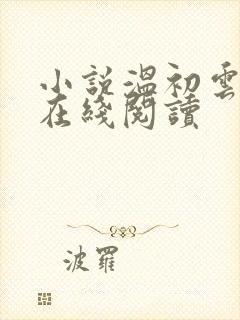 小説溫初雲
在綫閱讀
波羅